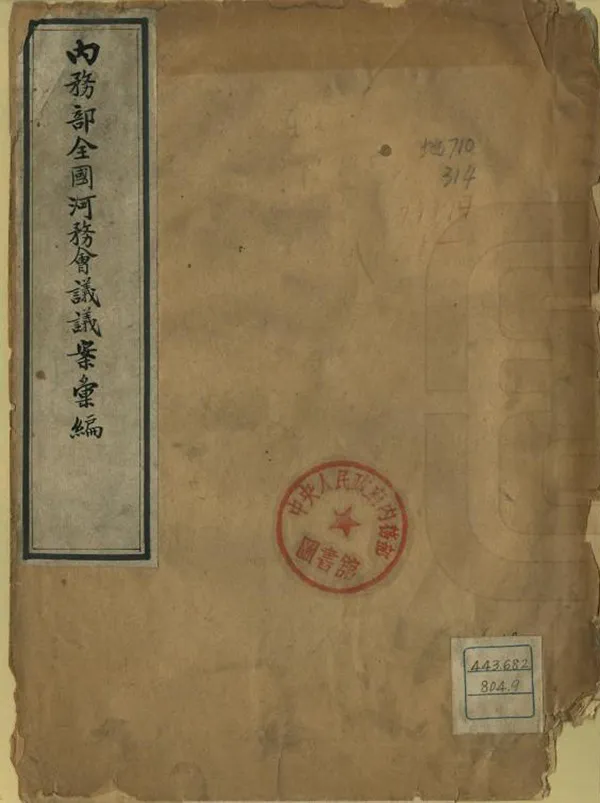 內務部全國河務會議議案彙編
地710
314
中央人民政府內務部
圖書館
443.682
804.9